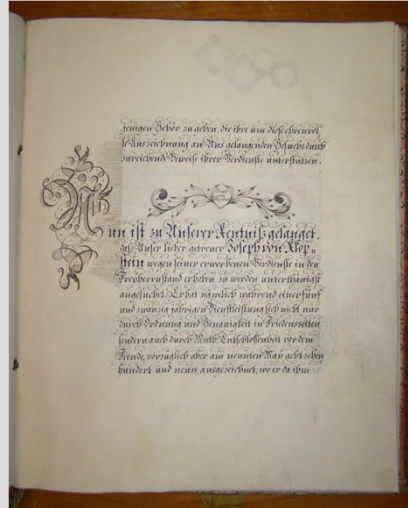 jenigen Gehör zu geben, die ihre um diese ehrenvol-
le Auszeichnung an Uns gelangenden Gesuche durch
zureichende Beweise ihrer Verdienste unterstützen.
Nun ist zu Unserer Kentniß gelanget,
daß Unser lieber getreuer Joseph von Klop-
stein wegen seiner erworbenen Verdienste in den
Freyherrnstand erhoben zu werden unterthänigst
angesuchet. Er hat nämlich während einer fünf
und zwanzig jährigen Dienstleistung sich nicht nur
durch Ordnung und Genauigkeit in Friedenszeiten
sondern auch durch Muth, Entschlossenheit vor dem
Feinde, vorzüglich aber am neunten May achtzehn
hundert und neun, ausgezeichnet, wo er da ihm